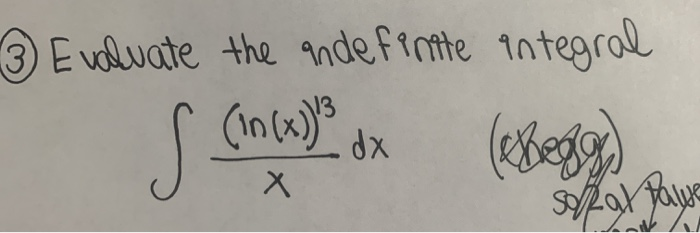 ③ Evaluate the indefinite integral
∫ (ln(x))¹³ / x dx (chegg)